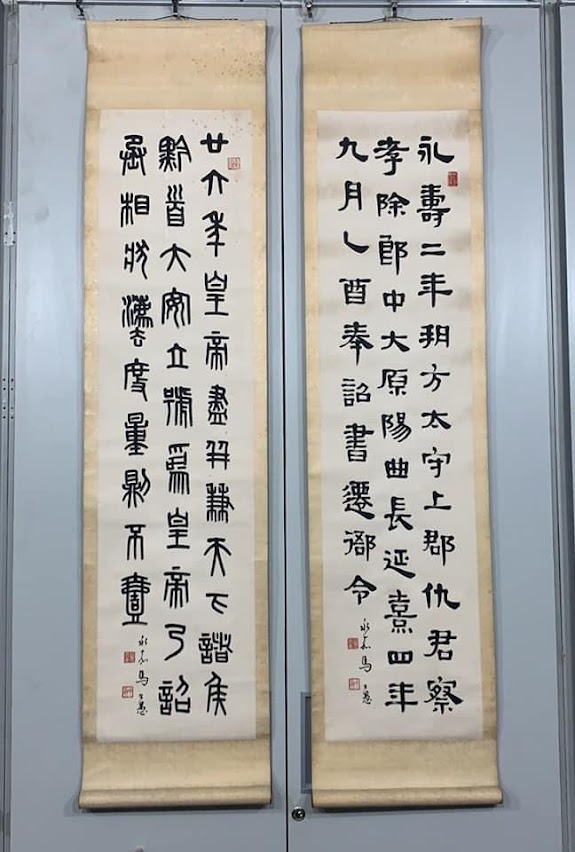 永壽二年朔方太守上郡仇君察
孝除郎中大原陽曲長延熹四年
九月乙酉奉詔書遷衙令 永嘉馬公愚
廿六年皇帝盡并兼天下諸侯
黔首大安立號爲皇帝乃詔
丞相狀灋度量則不壹 永嘉馬公愚